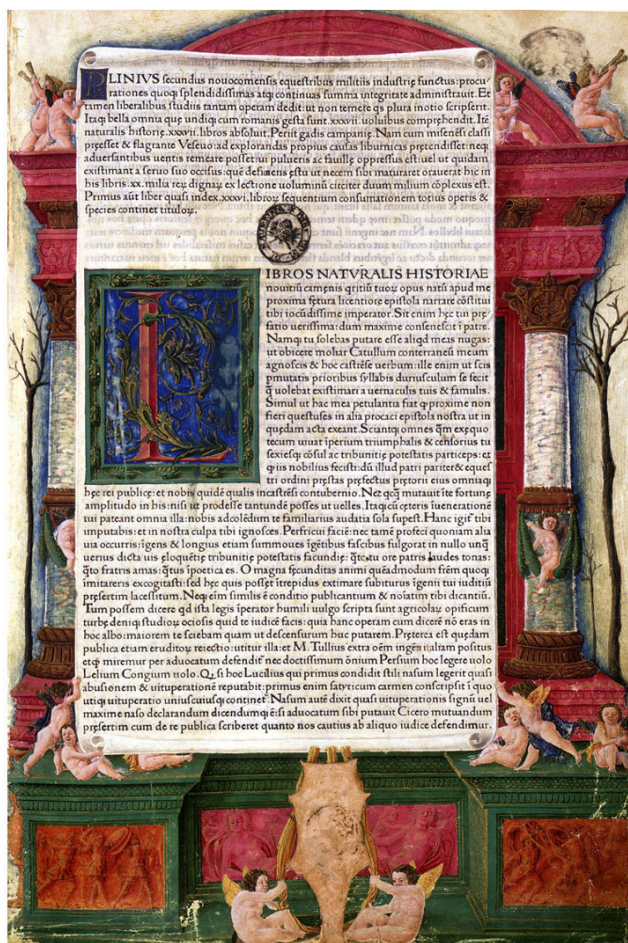 PLINIVS secundus nouocomensis equestribus militiis industrie functus: procu
rationes quoqȝ splendidissimas atqȝ continuas summa integritate administrauit. Et
tamen liberalibus studiis tantam operam dedit: ut non temere qs plura in otio scripserit.
Itaqȝ bella omnia que unqȝ cum romanis gesta sunt .xxxvii. uoluminibus comprehendit. Itē
naturalis historię .xxxvii. libros absoluit. Periit gadis campanię. Nam cum misenēsi classi
pręesset & flagrante Veseuo: ad explorandas propius causas liburnicas prętendisset: neqȝ
aduersantibus uentis remeare posset: ui pulueris ac fauillę oppressus est: uel ut quidam
existimant a seruo suo occisus: quē deficiens ęstu ut necem sibi maturaret orauerat hic in
his libris .xx. milia reȝ dignaȝ ex lectione uoluminū circiter duum milium cōplexus est.
Primus aūt liber quasi index .xxxvi. libroȝ sequentium consumationem totius operis &
species continet tituloȝ.
LIBROS NATVRALIS HISTORIAE
nouitiū camęnis qritiū tuoȝ opus natū apud me
proxima fętura licentiore epistola narrare cōstitui
tibi iocūdissime imperator. Sit enim hęc tui prę
fatio uerissima: dum maxime consenescit ī patre.
Namqȝ tu solebas putare esse aliqd meas nugas:
ut obicere moliar Catullum conterraneū meum
agnoscis & hoc castrēse uerbum: ille enim ut scis
pmutatis prioribus syllabis duriusculum se fecit
q̄ uolebat existimari a uernaculis tuis & famulis.
Simul ut hac mea petulantia fiat qȝ proxime non
fieri questus es in alia procaci epistola nostra ut in
quędam acta exeant. Sciantqȝ omnes q̄m ex ęquo
tecum uiuat īperium triumphalis & censorius tu
sexiesqȝ cōsul ac tribunitię potestatis particeps: et
qȝ iis nobilius fecisti: dū illud patri pariter & eques
tri ordini pręstas pręfectus pretorii eius omniaqȝ
hęc rei publicę: et nobis quidē qualis in castrēsi contubernio. Nec qcq̄ mutauit ī te fortunę
amplitudo in his: nisi ut prodesse tantundē posses ut uelles. Itaqȝ cū cęteris ī uenerationē
tui pateant omnia illa: nobis ad colēdum te familiarius audatia sola supest. Hanc igit̄ tibi
imputabis: et in nostra culpa tibi ignosces. Perfricui faciē: nec tamē profeci quoniam alia
uia occurris: īgens & longius etiam summoues īgētibus fascibus fulgorat in nullo unq̄
uerius dicta uis eloquētię tribunitię potestatis facundię: qto tu ore patris laudes tonas:
qto fratris amas: qtus ī poetica es. O magna fęcunditas animi quēadmodum frēm quoqȝ
imitareris excogitasti: sed hęc quis posset ītrepidus extimare subiturus īgenii tui iuditiū
pręsertim lacessitum. Neqȝ eīm similis ē conditio publicantium & noīatim tibi dicantiū.
Tum possem dicere qd ista legis īperator humili uulgo scripta sunt agricolaȝ opificum
turbę deniqȝ studioȝ ociosis quid te iudicē facis: quia hanc operam cum dicerē nō eras in
hoc albo: maiorem te sciebam quam ut descensurum huc putarem. Pręterea est quędam
publica etiam eruditoȝ reiectio: utitur illa: et M. Tullius extra oēm ingēii aliam positus
et qȝ miremur per aduocatum defendit̄ nec doctissimum ōnium Persium hoc legere uolo
Lelium Congium uolo. Qȝ si hoc Lucilius qui primus condidit stili nasum legerit quasi
abusionem & uituperationē reputabit: primus enim satyricum carmen conscripsit ī quo
utiqȝ uituperatio uniuscuiusqȝ continet̄. Nasum autē dixit quasi uituperationis signū uel
maxime naso declarandum dicendumqȝ ē: si aduocatum sibi putauit Cicero mutuandum
pręsertim cum de re publica scriberet quanto nos cautius ab aliquo iudice defendimur.